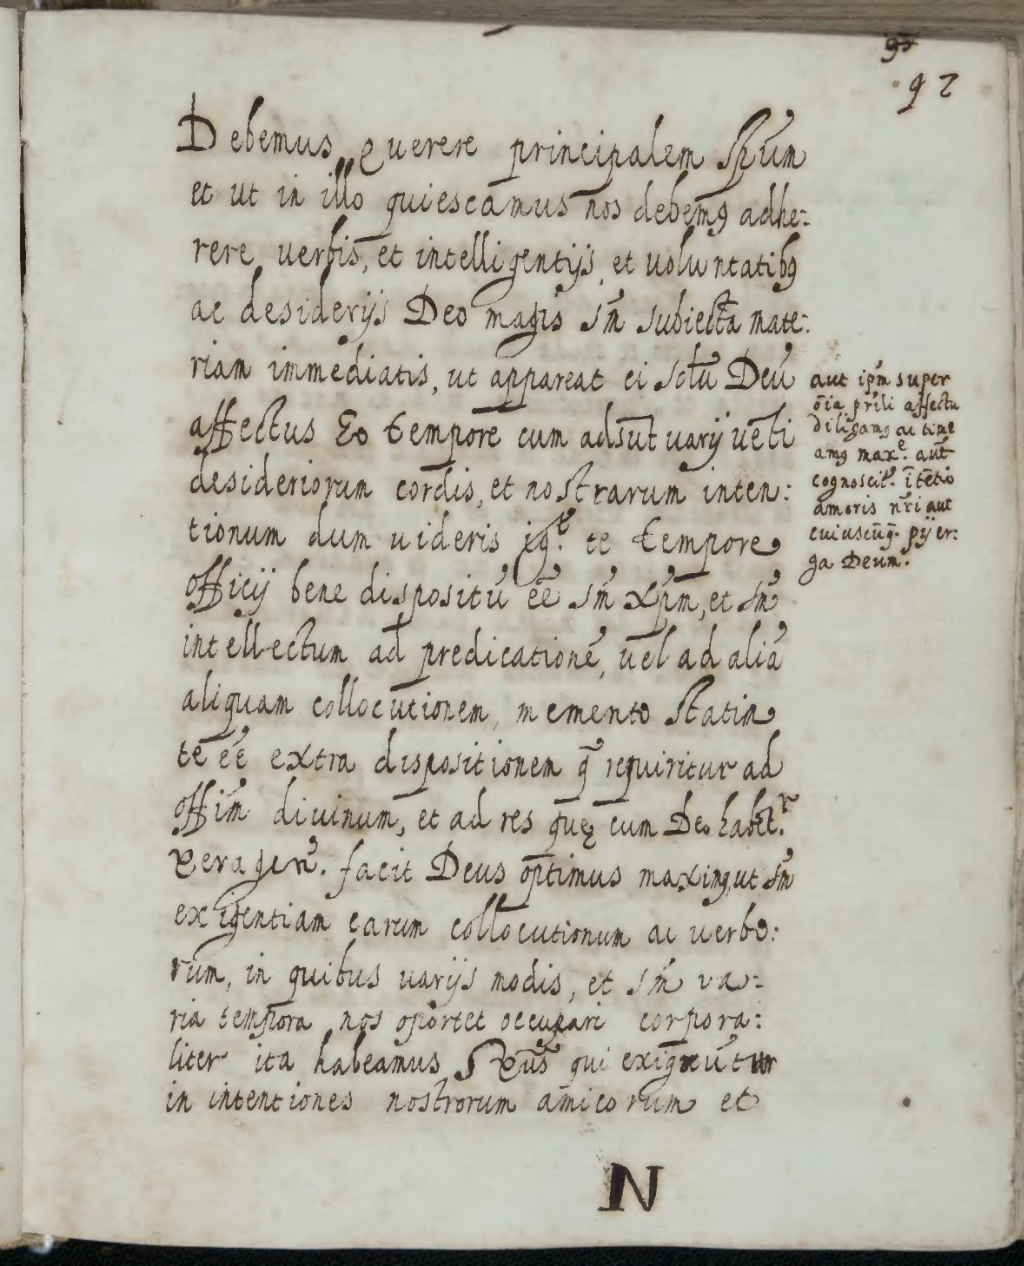 92
Debemus querere principalem Spũm
et ut in illo quiescamus nos debemꝰ adhe:
rere verbis, et intelligentijs, et voluntatibꝰ
ac desiderijs Deo magis sm̃ subiectã mate:
riam immediatis, ut appareat ei Deũ
affectus Eo tempore cum adsũt varij
desideriorum cordis, et nostrarum inten:
tionum dum uideris te tempore
officij bene dispositũ eẽ sm̃ xp̃m, et sm̃
intellectum ad predicationẽ, vel ad aliã
aliquam collocutionem, memento statim
te eẽ extra dispositionem q̃ requiritur ad
offim̃ divinum, et ad res quę cum Deo
facit Deus optimus maximꝰ, ut sm̃
exigentiam earum collocutionum ac verbo:
rum, in quibus varijs modis, et sm̃ va:
ria tempora nos oportet occupari corpora:
liter ita habeamus qui exigũtur
in intentiones nostrorum amicorum et
aut ip̃m super
oĩa affectu
diligamꝰ ac time
amꝰ maxᵉ. aut
ĩtẽtio
amoris nr̃i aut
cuiuscũq. pij er:
ga Deum.
N